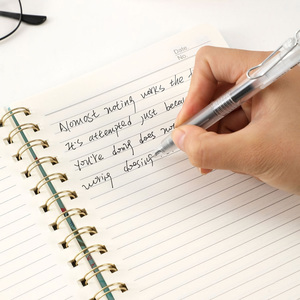 Date
No.
Almost noting works the
It's attempted just because
You're dong does not
wring doesing